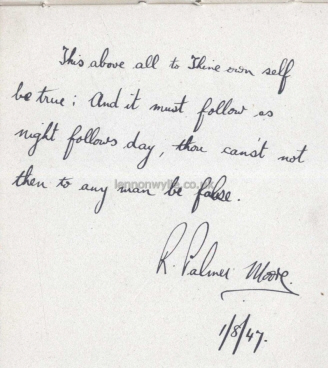 This above all to Thine own self
be true; And it must follow as
night follows day, thou cans't not
then to any man be false.
lennonwylie.co.uk
R. Palmer Moore.
1/8/47.